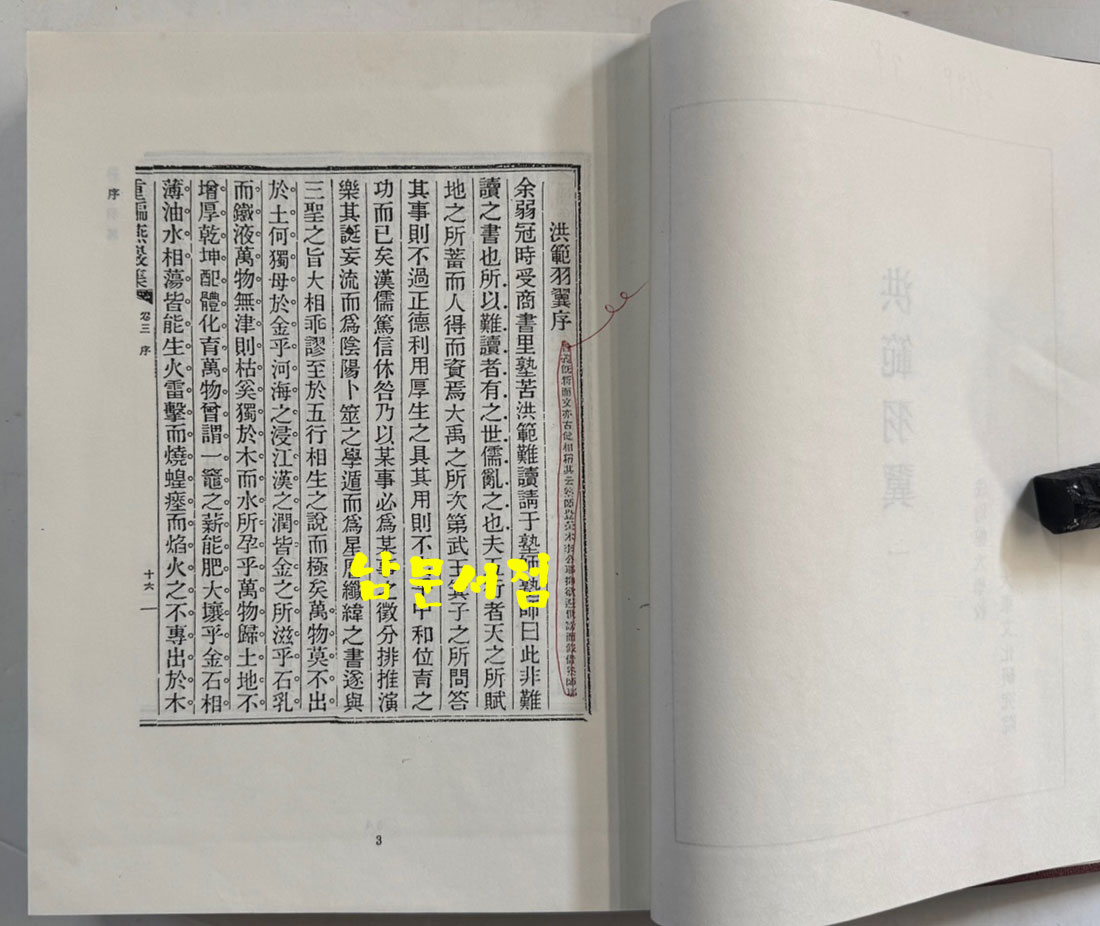 洪範羽翼
一
洪範羽翼序
余弱冠時受商書里塾苦洪範難讀請于塾師塾師曰此非難
讀之書也所以難讀者有之世儒亂之也夫五行者天之所賦
地之所蓄而人得而資焉大禹之所次第武王箕子之所問答
其事則不過正德利用厚生之具其用則不中和位育之
功而已矣漢儒篤信休咎乃以某事必爲某之徵分排推演
樂其誕妄流而爲陰陽卜筮之學遁而爲星曆纖緯之書遂與
三聖之旨大相乖謬至於五行相生之說而極矣萬物莫不出
於土何獨母於金乎河海之浸江漢之潤皆金之所滋乎石乳
而鐵液萬物無津則枯奚獨於木而水所孕乎萬物歸土地不
增厚乾坤配體化育萬物曾謂一竈之薪能肥大壤乎金石相
薄油水相蕩皆能生火雷擊而燒蝗瘞而焰火之不專出於木
重編燕巖集 卷三 序 十六
序
3
남문서점